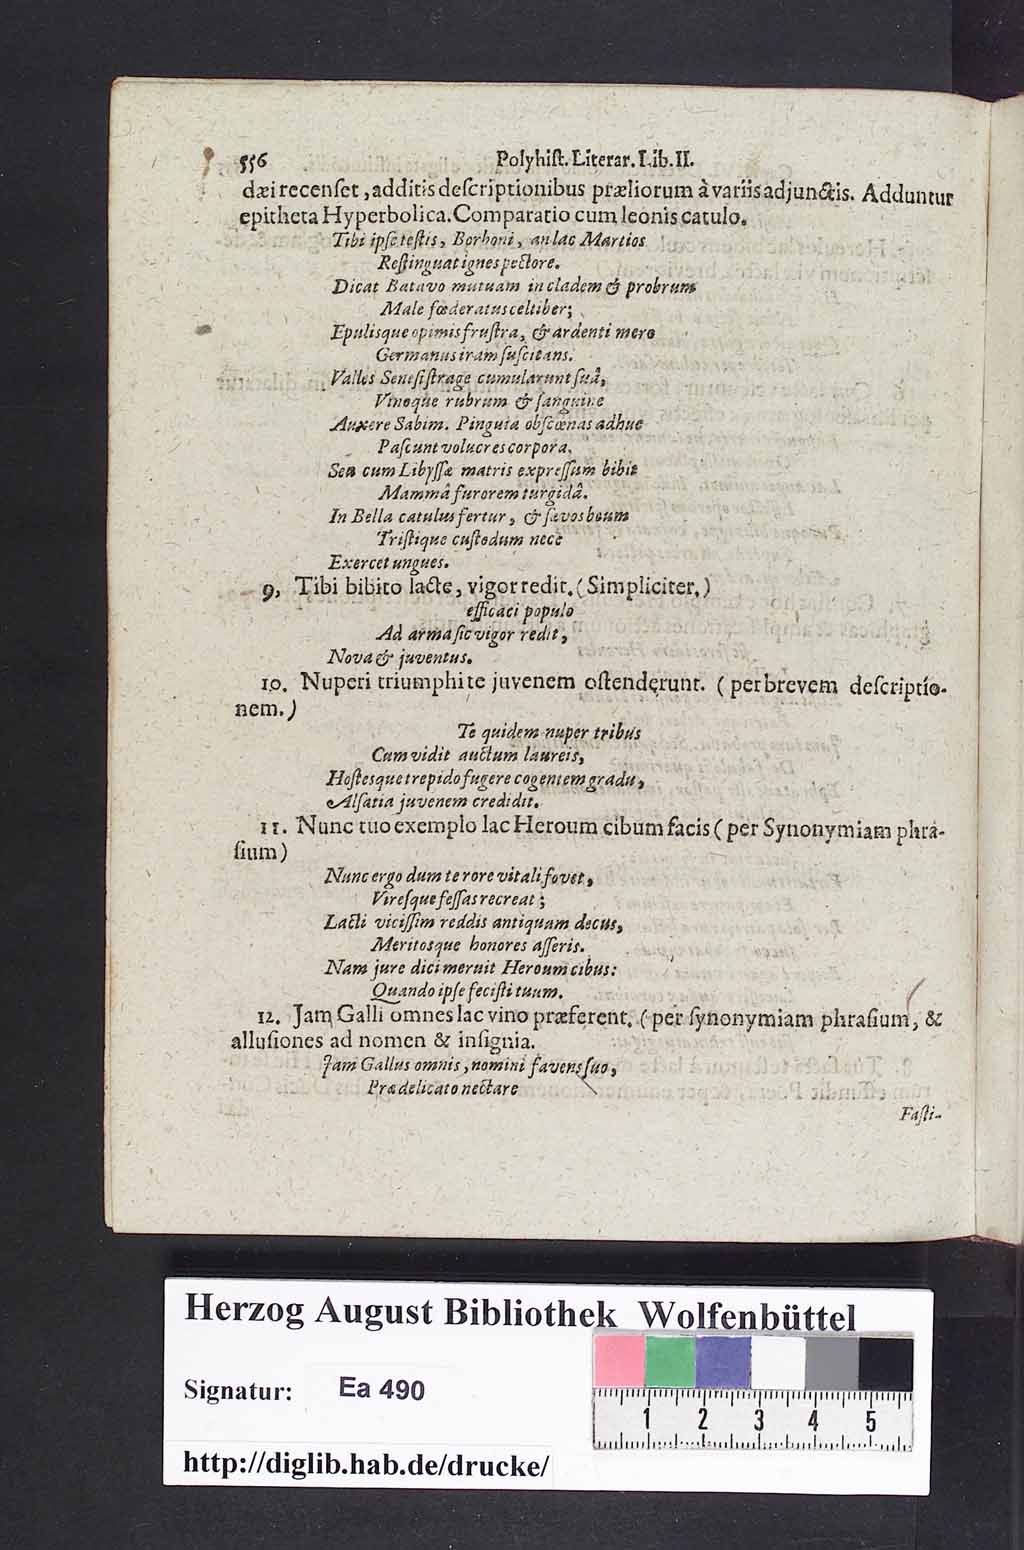 556 Polyhiſt. Literar. Lib. II.
dæi recenſet, additis deſcriptionibus præliorum à variis adjunctis. Adduntur
epitheta Hyperbolica. Comparatio cum leonis catulo.
Tibi ipſe teſtis, Borboni, an lac Martios
Reſtinguat ignes pectore.
Dicat Batavo mutuam in cladem & probrum
Male fœderatus celtiber;
Epulisque opimis fruſtra, & ardenti mero
Germanus iram ſuſcitans.
Valles Seneſi ſtrage cumularunt ſuâ,
Vinoque rubrum & ſanguine
Auxere Sabim. Pinguia obſcœnas adhuc
Paſcunt volucres corpora.
Seu cum Libyſſæ matris expreſſum bibit
Mammâ furorem turgidâ.
In Bella catulus fertur, & ſævos boum
Triſtique cuſtodum nece
Exercet ungues.
9, Tibi bibito lacte, vigor redit. (Simpliciter.)
efficaci populo
Ad arma ſic vigor redit,
Nova & juventus.
10. Nuperi triumphi te juvenem oſtenderunt. (per brevem deſcriptio-
nem.)
Te quidem nuper tribus
Cum vidit auctum laureis,
Hoſtesque trepido fugere cogentem gradu,
Alſatia juvenem credidit.
11. Nunc tuo exemplo lac Heroum cibum facis (per Synonymiam phra-
ſium)
Nunc ergo dum te rore vitali fovet,
Viresque feſſas recreat;
Lacti viciſſim reddis antiquum decus,
Meritosque honores aſſeris.
Nam jure dici meruit Heroum cibus:
Quando ipſe feciſti tuum.
12. Jam Galli omnes lac vino præferent. (per ſynonymiam phraſium, &
alluſiones ad nomen & inſignia.
Jam Gallus omnis, nomini favens ſuo,
Præ delicato nectare
Faſti-
Herzog August Bibliothek Wolfenbüttel
Signatur: Ea 490
http://diglib.hab.de/drucke/
1 2 3 4 5